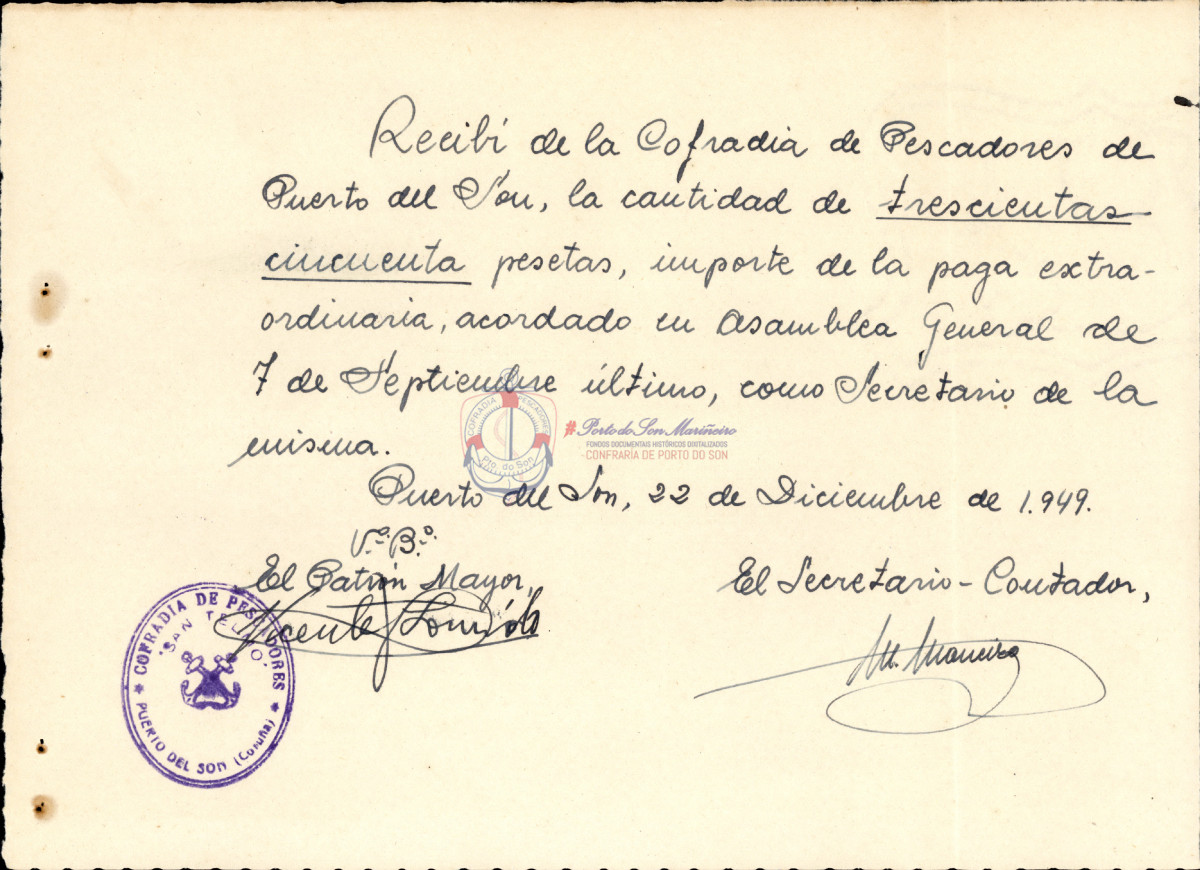 Recibí de la Cofradia de Pescadores de
Puerto del Son, la cantidad de trescientas
cincuenta pesetas, importe de la paga extra-
ordinaria, acordado en Asamblea General de
7 de Septiembre último, como Secretario de la
misma.
Puerto del Son, 22 de Diciembre de 1.949.
Vº. Bº.
El Patrón Mayor,
El Secretario-Contador,
Vicente
M.
COFRADIA DE PESCADORES
"SAN TELMO"
PUERTO DEL SON (Coruña)
COFRADIA PESCADORES
Pto. do Son
#Porto do Son Mariñeiro
FONDOS DOCUMENTAIS HISTÓRICOS DIXITALIZADOS
CONFRARÍA DE PORTO DO SON